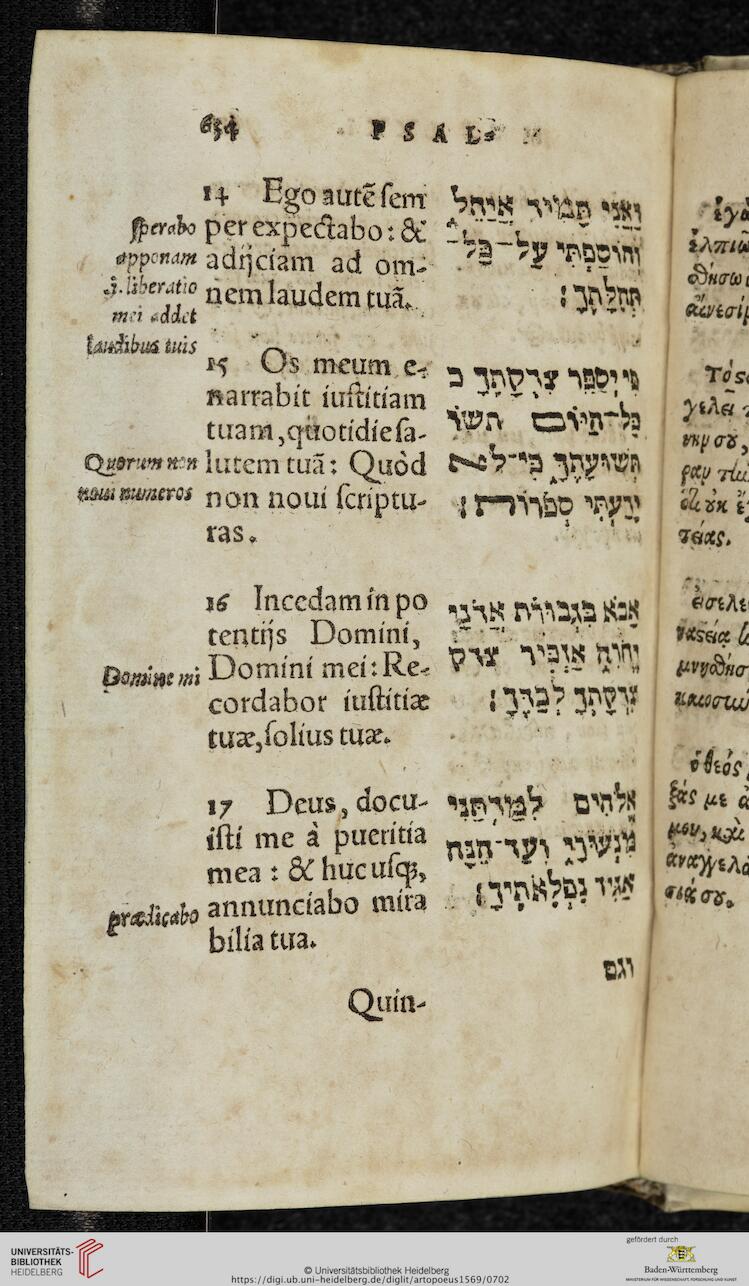 634
PSAL
14 Ego autē sem
per expectabo: &
adijciam ad om-
nem laudem tuā.
sperabo
apponam
.i. liberatio
mei addet
laudibus tuis
וַאֲנִי תָּמִיד אֲיַחֵל
וְהוֹסַפְתִּי עַל־כָּל־
תְּהִלָּתֶךָ׃
15 Os meum e-
narrabit iustitiam
tuam, quotidie sa-
lutem tuā: Quòd
non noui scriptu-
ras.
Quorum non
noui numeros
פִּי יְסַפֵּר צִדְקָתֶךָ כ
כָּל־הַיּוֹם תשׁו
תְּשׁוּעָתֶךָ כִּי־לא
יָדַעְתִּי סְפֹרוֹת׃
16 Incedam in po
tentijs Domini,
Domini mei: Re-
cordabor iustitiæ
tuæ, solius tuæ.
Domine mi
אָבֹא בִּגְבוּרֹת אֲדֹנָי
יֱהֹוִה אַזְכִּיר צדק
צִדְקָתְךָ לְבַדֶּךָ׃
17 Deus, docu-
isti me à pueritia
mea: & huc usq̃,
annunciabo mira
bilia tua.
prædicabo
אֱלֹהִים לִמַּדְתַּנִי
מִנְּעוּרָי וְעַד־הֵנָּה
אַגִּיד נִפְלְאֹתֶיךָ׃
וגם
Quin-
ἐλπιῶ
Τὸ
γελεῖ
τείας.
ὁ θεός
σιά σου.
UNIVERSITÄTS-
BIBLIOTHEK
HEIDELBERG
© Universitätsbibliothek Heidelberg
https://digi.ub.uni-heidelberg.de/diglit/artopoeus1569/0702
gefördert durch
Baden-Württemberg
MINISTERIUM FÜR WISSENSCHAFT, FORSCHUNG UND KUNST